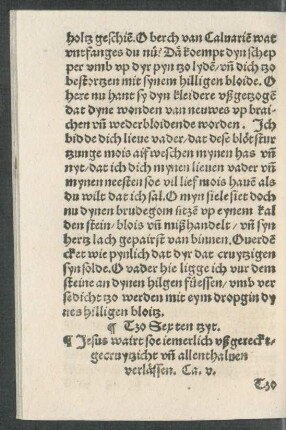 holtz geschiē. O berch van Caluariē wat
vntfanges du nū? Dā koempt dyn schep
per vmb vp dyr pyn tzo lydē / vn̄ dich tzo
bestortzen mit synem hilligen bloide. O
here nu hant sy dyn kleidere vßgetzogē
dat dyne wonden van neuwes vp brai-
chen vn̄ wederbloidende worden. Ich
bidde dich lieue vader / dat dese blötstur
tzunge mois aif weschen mynen has vn̄
nyt / dat ich dich mynen lieuen vader vn̄
mynen neesten soe vil lief mois hauē als
du wilt dat ich sal. O myn siele siet doch
nu dynen brudegom sitzē vp eynem kal
den stein / blois vn̄ mißhandelt / vn̄ syn
hertz lach gepairst van binnen. Ouerdē
cket wie pynlich dat dyr dat cruytzigen
syn solde. O vader hie ligge ich vur dem
steine an dynen hilgen füessen / vmb ver
sedicht tzo werden mit eym dropgin dy
nes hilligen bloitz.
¶ Tzo Sexten tzyt.
¶ Jesus wairt soe iemerlich vßgereckt /
gecruytzicht vn̄ allenthaluen
verlässen. Ca. v.
Tzo